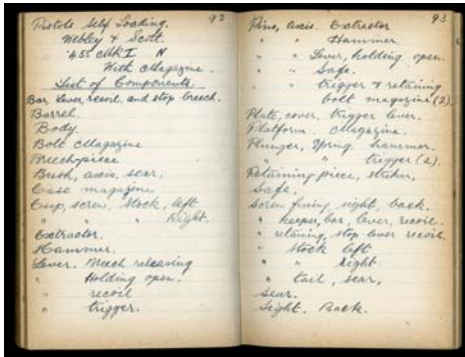 92
Pistols Self Loading.
Webley & Scott.
.455 MK I N
With Magazine.
List of Components
Bar, Lever, recoil, and stop breech.
Barrel.
Body.
Bolt Magazine
Breech-piece
Bush, axis, sear,
Case magazine
Cup, screw, stock, left
" " " Right.
Extractor.
Hammer.
Lever. Breech releasing
" Holding open.
" recoil
" trigger.
93
Pins, axis. Extractor
" " Hammer.
" " Lever, holding open.
" " Safe.
" " trigger & retaining
bolt magazine (2).
Plate, cover, trigger lever.
Platform. Magazine.
Plunger, Spring. hammer.
" " trigger (2).
Retaining piece, striker,
Safe.
Screw fixing sight, back.
" keeper, bar, lever, recoil.
" retaining, stop lever recoil.
" stock left
" " Right
" tail, sear,
Sear.
Sight. Back.